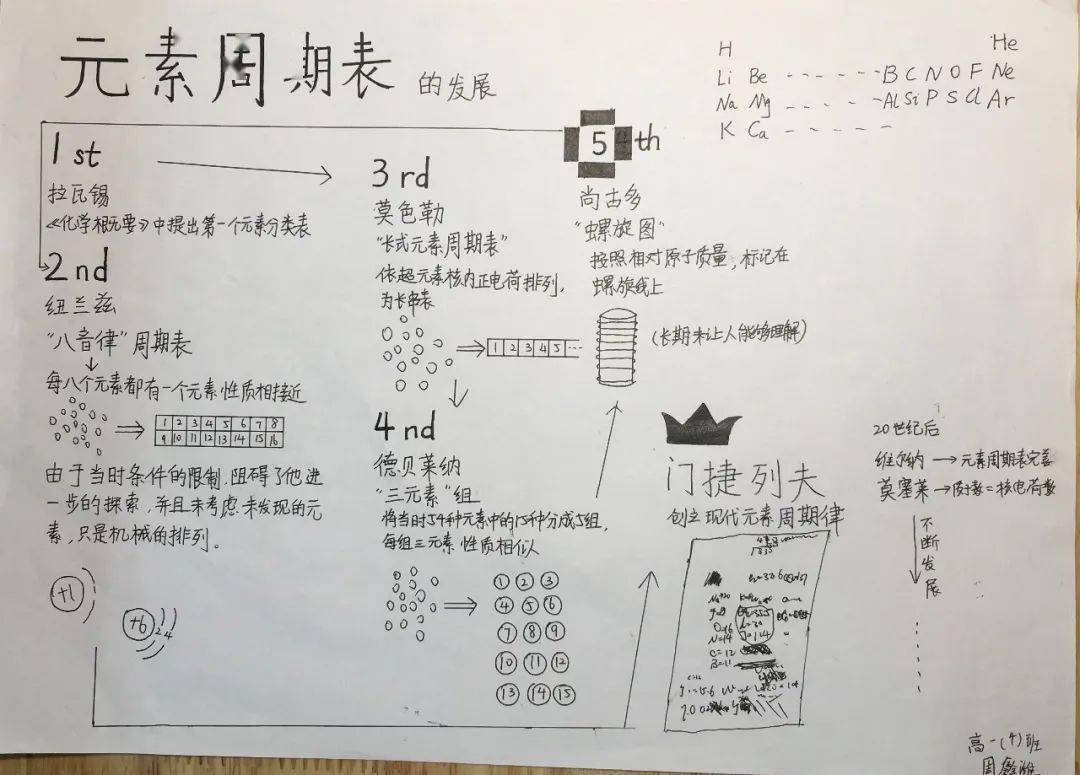 元素周期表 的发展
H He
Li Be ------ B C N O F Ne
Na Mg ------ Al Si P S Cl Ar
K Ca ------
1 st
拉瓦锡
《化学概要》中提出第一个元素分类表
2 nd
纽兰兹
“八音律”周期表
每八个元素都有一个元素性质相接近
1 2 3 4 5 6 7 8
9 10 11 12 13 14 15 16
由于当时条件的限制，阻碍了他进
一步的探索，并且未考虑未发现的元
素，只是机械的排列。
+1
+6 2 4
3 rd
莫色勒
“长式元素周期表”
依超元素核内正电荷排列，
为长串表
1 2 3 4 5 ...
4 nd
德贝莱纳
“三元素”组
将当时54种元素中的15种分成5组，
每组三元素性质相似
1 2 3
4 5 6
7 8 9
10 11 12
13 14 15
5 th
尚古多
“螺旋图”
按照相对原子质量，标记在
螺旋线上
（长期未让人能够理解）
门捷列夫
创立现代元素周期律
N=14
C=12
B=11
20世纪后
→元素周期表完善
莫塞莱→序数=核电荷数
不断发展
高一（4）班
周